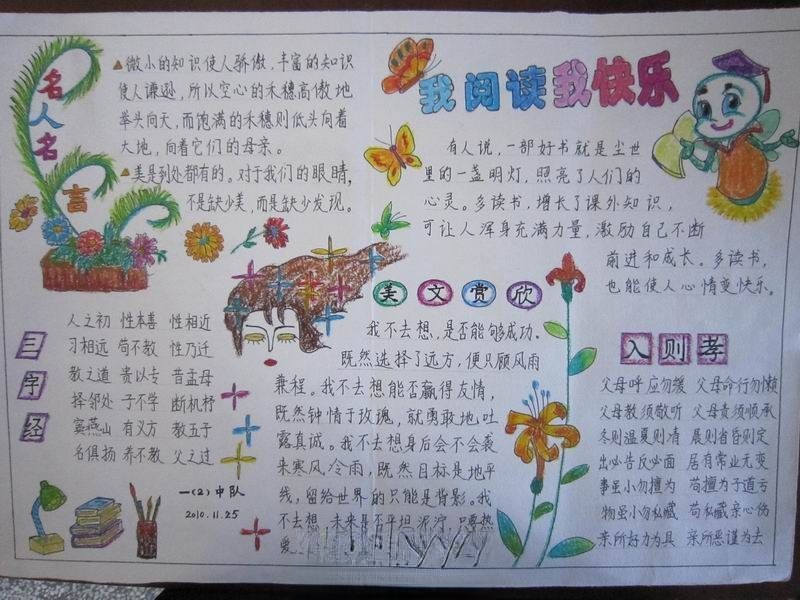 名人名言
微小的知识使人骄傲，丰富的知识
使人谦逊，所以空心的禾穗高傲地
举头向天，而饱满的禾穗则低头向着
大地，向着它们的母亲。
美是到处都有的。对于我们的眼睛，
不是缺少美，而是缺少发现。
我阅读我快乐
有人说，一部好书就是尘世
里的一盏明灯，照亮了人们的
心灵。多读书，增长了课外知识，
可让人浑身充满力量，激励自己不断
前进和成长。多读书，
也能使人心情变快乐。
三字经
人之初 性本善 性相近
习相远 苟不教 性乃迁
教之道 贵以专 昔孟母
择邻处 子不学 断机杼
窦燕山 有义方 教五子
名俱扬 养不教 父之过
一(2)中队
2010.11.25
美文赏欣
我不去想，是否能够成功。
既然选择了远方，便只顾风雨
兼程。我不去想能否赢得友情，
既然钟情于玫瑰，就勇敢地吐
露真诚。我不去想身后会不会袭
来寒风冷雨，既然目标是地平
线，留给世界的只能是背影。我
不去想 未来是否平坦泥泞 只要热
爱
入则孝
父母呼 应勿缓 父母命行勿懒
父母教须敬听 父母责须顺承
冬则温夏则凊 晨则省昏则定
出必告反必面 居有常业无变
事虽小勿擅为 苟擅为子道亏
物虽小勿私藏 苟私藏亲心伤
亲所好力为具 亲所恶谨为去